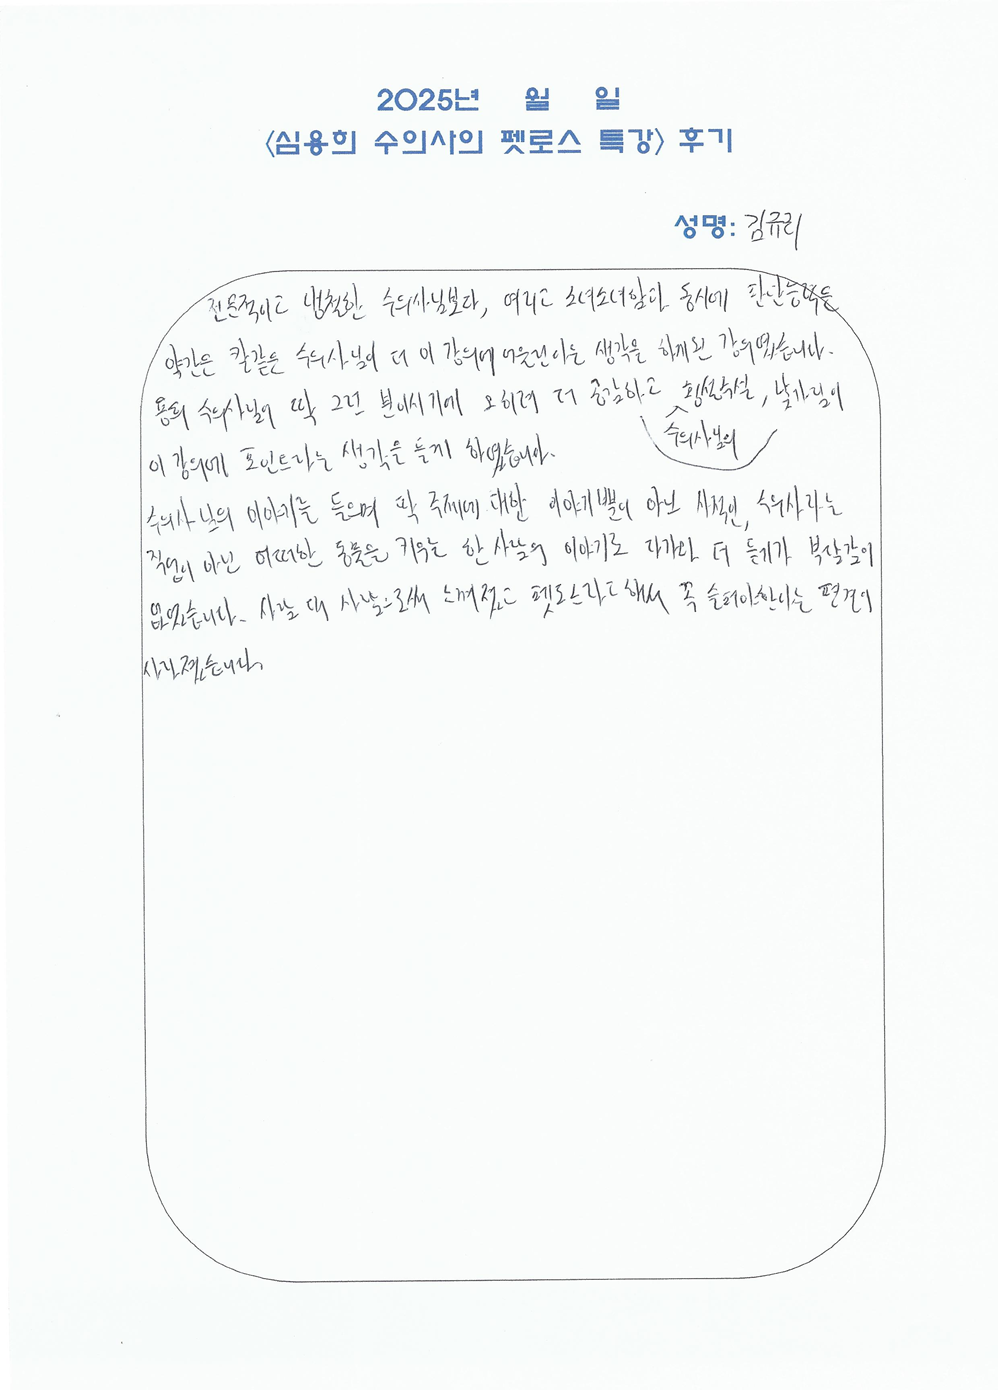 2025년 월 일
<심용희 수의사의 펫로스 특강> 후기
성명: 김규리
전문적이고 냉철한 수의사님보다, 여리고 소녀소녀함과 동시에 판단능력은
약간은 칼같은 수의사님이 더 이 강의에 어울린다는 생각을 하게된 강의였습니다.
용희 수의사님이 딱 그런 분이시기에 오히려 더 공감하고 횡설수설, 날가림이
수의사님의
이 강의에 포인트라는 생각을 들게 하였습니다.
수의사님의 이야기를 들으며 딱 주제에 대한 이야기뿐이 아닌 사적인, 수의사라는
직업이 아닌 어떠한 동물을 키우는 한 사람의 이야기로 다가와 더 듣기가 부담감이
없었습니다. 사람 대 사람으로써 느껴졌고 펫로스라고해서 꼭 슬퍼야한다는 편견이
사라졌습니다.